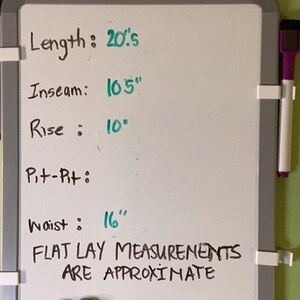 Length: 20".5
Inseam: 10 5"
Rise: 10"
Pit-Pit:
Waist: 16"
FLAT LAY MEASUREMENTS
ARE APPROXIMATE